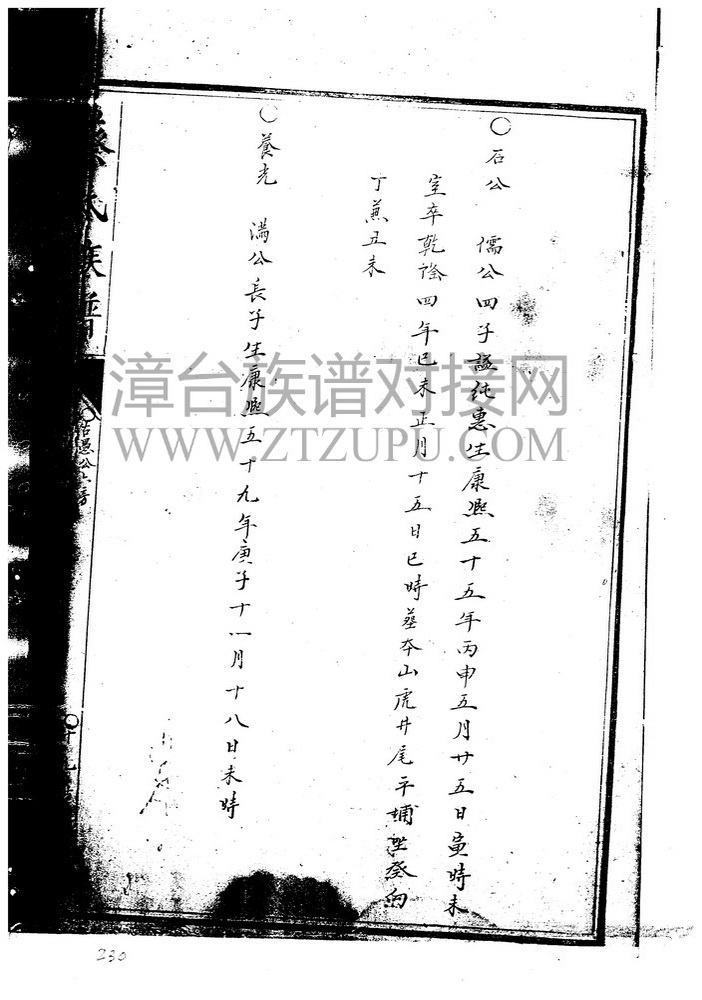 〇石公 儒公四子諡純惠生康熙五十五年丙申五月廿五日寅時未
室卒乾隆四年己未正月十五日巳時葬本山虎井尾平埔坐癸向
丁兼丑未
〇養光 满公長子生康熙五十九年庚子十一月十八日未時
氏族譜
公六房
漳台族谱对接网
WWW.ZTZUPU.COM
230